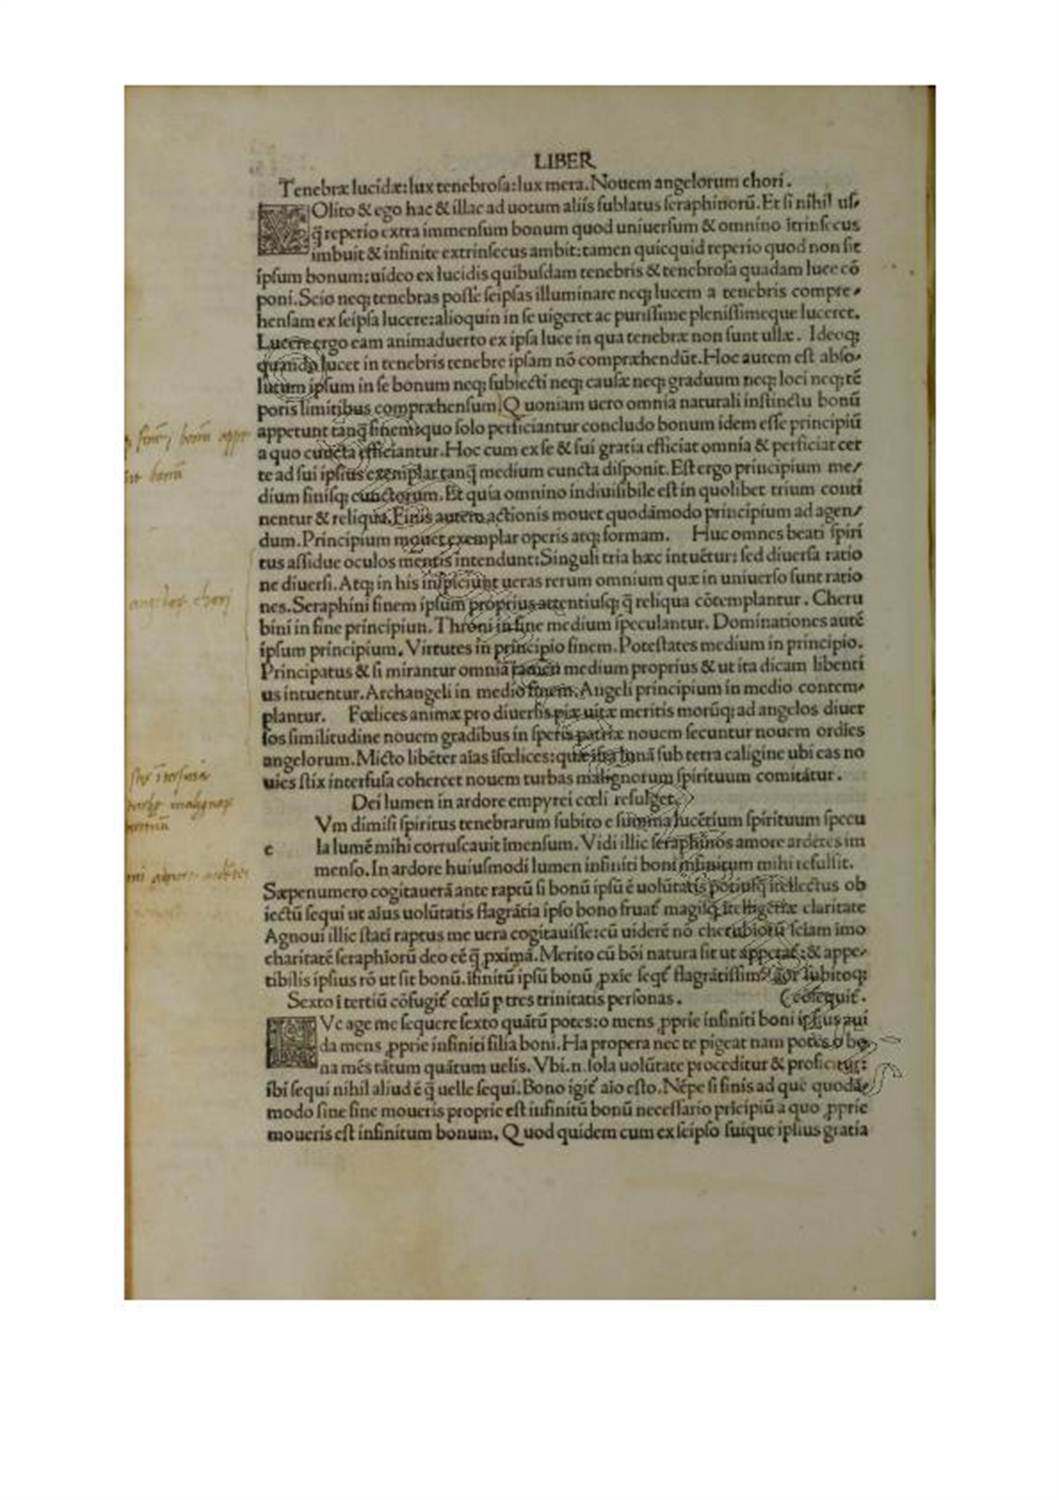 LIBER
Tenebræ lucidæ: lux tenebrosa: lux mera. Nouem angelorum chori.
VOlito & ego hac & illac ad uotum aliis sublatus seraphinorū. Et si nihil uſ⸗
q̄ reperio extra immensum bonum quod uniuersum & omnino ītrinsecus
imbuit & infinite extrinsecus ambit: tamen quicquid reperio quod non sit
ipsum bonum: uideo ex lucidis quibusdam tenebris & tenebrosa quadam luce cō
poni. Scio neq; tenebras posse seipsas illuminare neq; lucem a tenebris compre⸗
hensam ex seipsa lucere: alioquin in se uigeret ac purissime plenissimeque luceret.
Lucere ergo eam animaduerto ex ipsa luce in qua tenebræ non sunt ullæ. Ideoq;
quando lucet in tenebris tenebre ipsam nō compræhendūt. Hoc autem est abso⸗
lutum ipsum in se bonum neq; subiecti neq; causæ neq; graduum neq; loci neq; tē
poris limitibus compræhensum. Quoniam uero omnia naturali instinctu bonū
appetunt tanq̄ finem: quo solo perficiantur concludo bonum idem esse principiū
a quo cuncta efficiantur. Hoc cum ex se & sui gratia efficiat omnia & perficiat cer
te ad sui ipsius exemplar tanq̄ medium cuncta disponit. Est ergo principium me⸗
dium finisq; cunctorum. Et quia omnino indiuisibile est in quolibet trium conti
nentur & reliqua. Finis autem actionis mouet quodāmodo principium ad agen⸗
dum. Principium mouet exemplar operis atq; formam. Huc omnes beati spiri
tus assidue oculos mentis intendunt: Singuli tria hæc intuētur: sed diuersa ratio
ne diuersi. Atq; in his inspiciunt ueras rerum omnium quæ in uniuerso sunt ratio
nes. Seraphini finem ipsum proprius attentiusq; q̄ reliqua cōtemplantur. Cheru
bini in fine principiun. Throni in fine medium speculantur. Dominationes autē
ipsum principium. Virtutes in principio finem. Potestates medium in principio.
Principatus & si mirantur omnia tamen medium proprius & ut ita dicam libenti
us intuentur. Archangeli in medio finem. Angeli principium in medio contem⸗
plantur. Fœlices animæ pro diuersis piæ uitæ meritis morūq; ad angelos diuer
sos similitudine nouem gradibus in speris patriæ nouem secuntur nouem ordīes
angelorum. Micto libēter aīas īfœlices: quæ ista lunā sub terra caligine ubi eas no
uies stix interfusa cohercet nouem turbas malignorum spirituum comitātur.
Dei lumen in ardore empyrei cœli refulget.
e Vm dimisi spiritus tenebrarum subito e summa lucētium spirituum specu
la lumē mihi corruscauit īmensum. Vidi illic seraphinos amore ardētes im
menso. In ardore huiusmodi lumen infiniti boni infinitum mihi refulsit.
Sæpenumero cogitauerā ante raptū si bonū ipsū ē uolūtatis potiusq̄ ītellectus ob
iectū sequi ut aīus uolūtatis flagrātia ipso bono fruat̄ magisq̄ ītelligētiæ claritate
Agnoui illic stati raptus me uera cogitauisse: cū uiderē nō cherubiorū sciam imo
charitatē seraphiorū deo eē q̄ ꝓximā. Merito cū bōi natura sit ut appetat̄: & appe⸗
tibilis ipsius rō ut sit bonū. īfinitū ipsū bonū ꝓxīe seqt̄ flagrātissim⁹ amor subitoq;
Sexto ī tertiū cōfugit̄ cœlū p tres trinitatis personas. (cōsequit̄.
Ve age me sequere sexto quātū potes: o mens ꝓprie infiniti boni ipsius aui
da mens ꝓprie infiniti filia boni. Ha propera nec te pigeat nam potes o bo
na mēs tātum quātum uelis. Vbi .n. sola uolūtate proceditur & proficitur:
ibi sequi nihil aliud ē q̄ uelle sequi. Bono igit̄ aīo esto. Nēpe si finis ad quē quodā⸗
modo sine fine moueris proprie est infinitū bonū necessario pricipiū a quo ꝓprie
moueris est infinitum bonum. Quod quidem cum ex seipso suique ipsius gratia